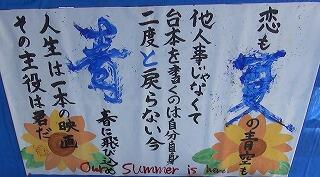 恋も
夏の青空も
他人事じゃなくて
台本を書くのは自分自身
二度と戻らない今
青春に飛び込め
人生は一本の映画
その主役は君だ
Our Summer is here